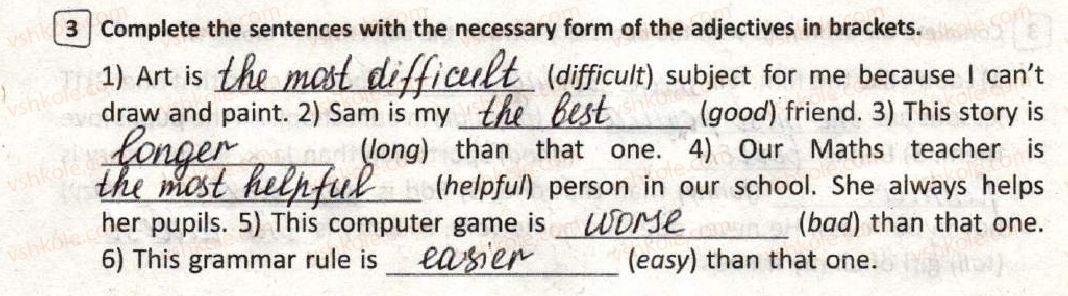 3 Complete the sentences with the necessary form of the adjectives in brackets.
1) Art is the most difficult (difficult) subject for me because I can't
draw and paint. 2) Sam is my the best (good) friend. 3) This story is
longer (long) than that one. 4) Our Maths teacher is
the most helpful (helpful) person in our school. She always helps
her pupils. 5) This computer game is worse (bad) than that one.
6) This grammar rule is easier (easy) than that one.